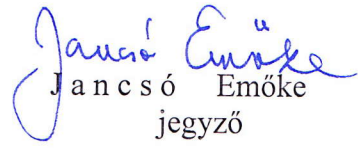 Jancsó Emőke
J a n c s ó Emőke
jegyző